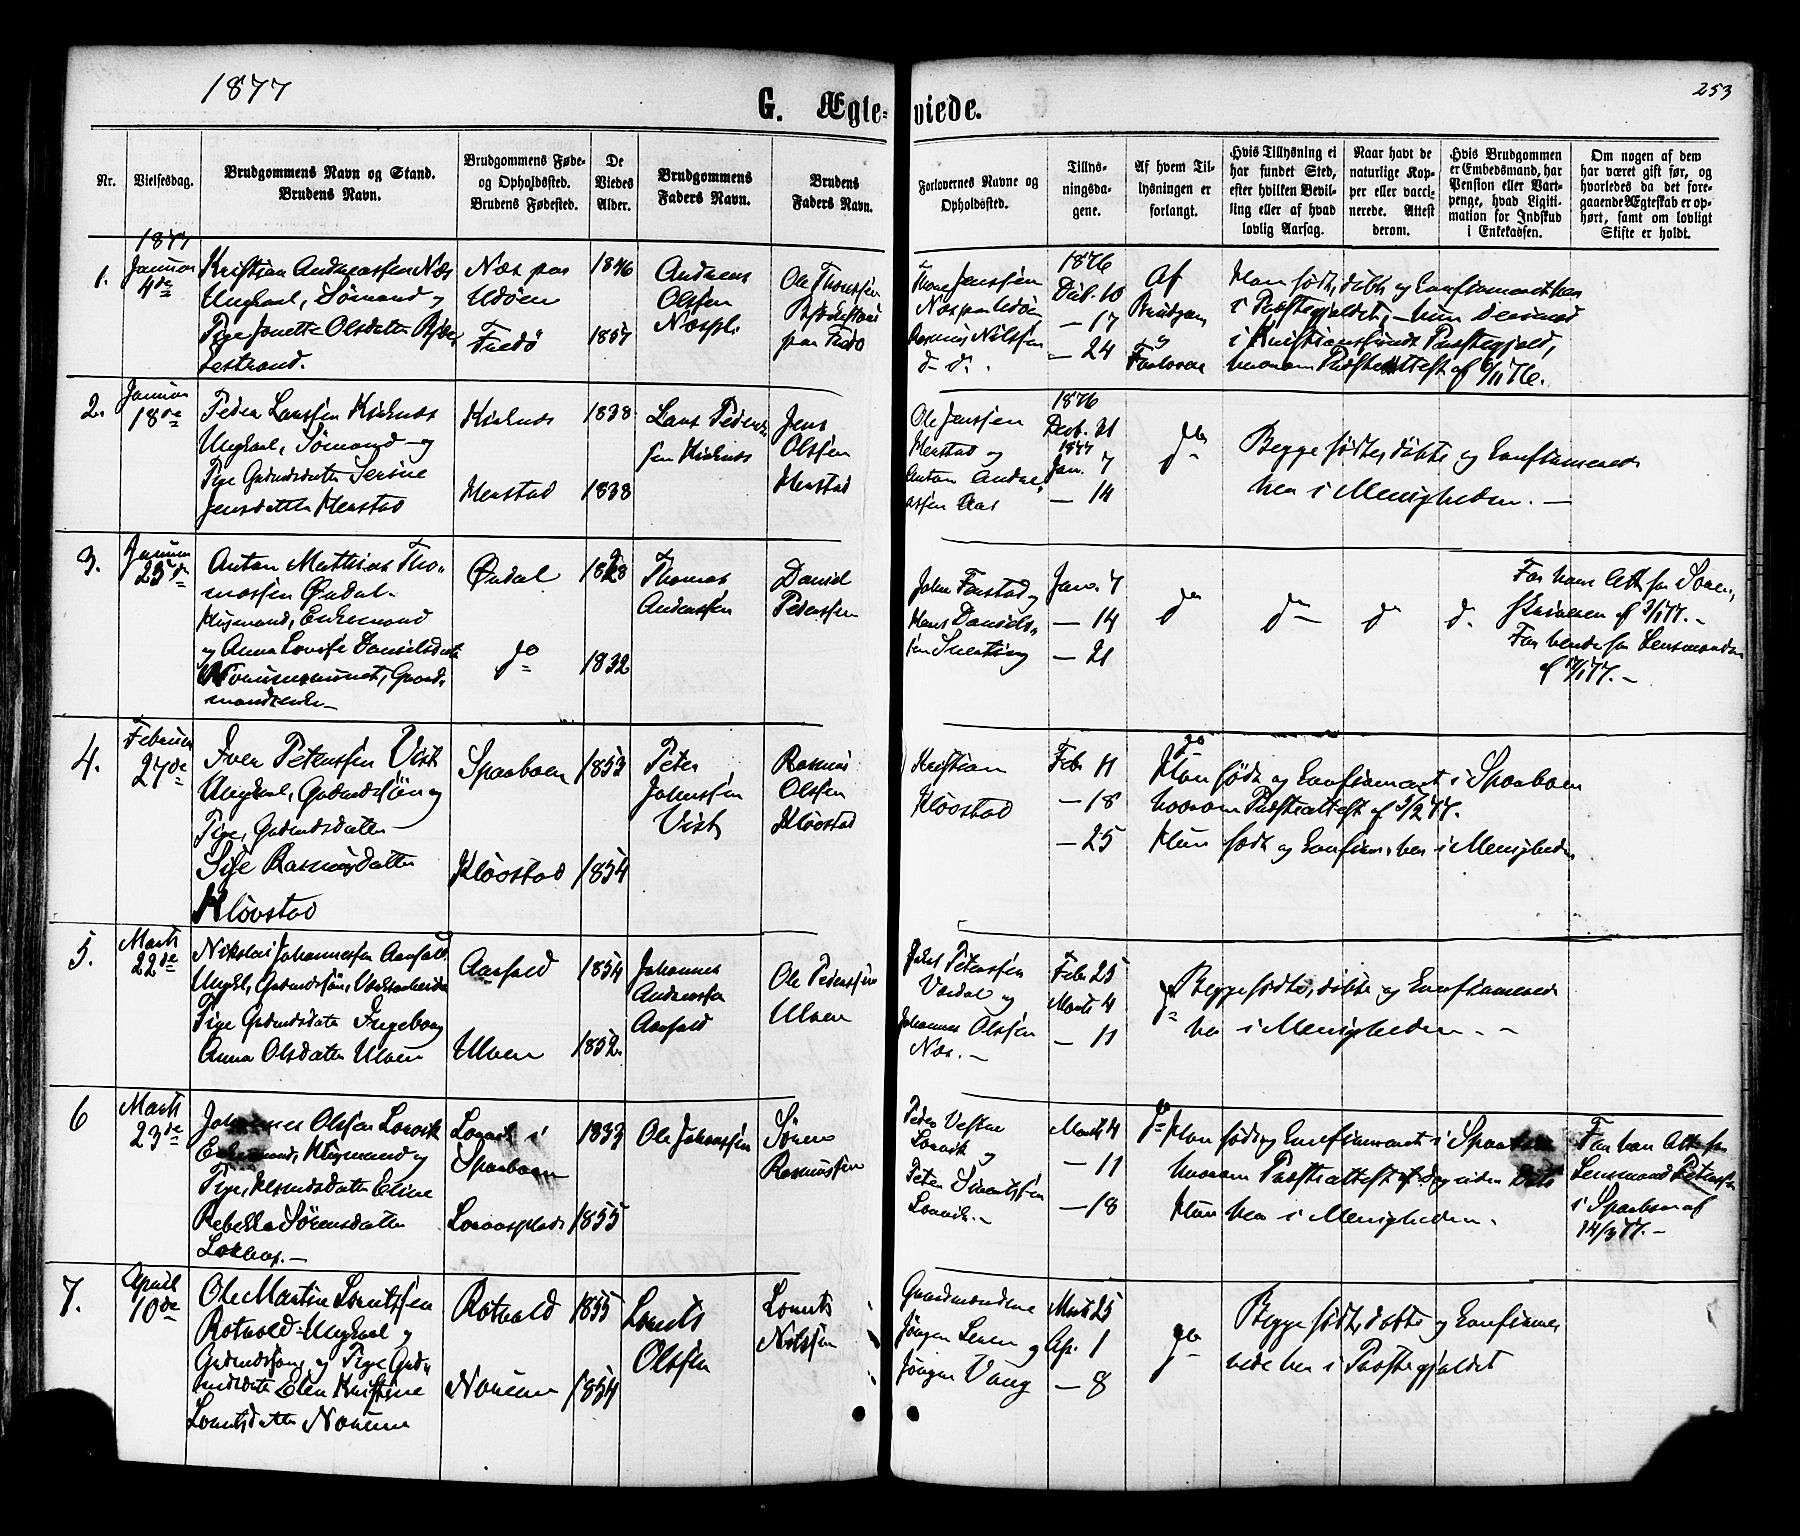 1877
253
G. Ægte-viede.
Nr.
Vielsesdag.
Brudgommens Navn og Stand.
Brudens Navn.
Brudgommens Føde-
og Opholdssted.
Brudens Fødested.
De
Viedes
Alder.
Brudgommens
Faders Navn.
Brudens
Faders Navn.
Forlovernes Navne og
Opholdssted.
Tillys-
ningsda-
gene.
Af hvem Til-
lysningen er
forlangt.
Hvis Tillysning ei
har fundet Sted,
efter hvilken Bevil-
ling eller af hvad
lovlig Aarsag.
Naar havt de
naturlige Kop-
per eller vacci-
nerede. Attest
derom.
Hvis Brudgommen
er Embedsmand, har
Pension eller Vart-
penge, hvad Ligiti-
mation for Indskud
i Enkekassen.
Om nogen af dem
har været gift før, og
hvorledes da det fore-
gaaende Ægteskab er op-
hørt, samt om lovligt
Skifte er holdt.
1.
1877
Januar
4de
Kristian Andreassen Næs
Ungkarl, Sømand og
Pige Jonetta Olsdatter
Næs paa
Edøen
Fredø
1846
1857
Andreas
Olssen
Næspl.
Ole Thorssen
paa Fredø
Thore Jenssen
Næs paa Edøen
Rasmus Nilssen
d. d.
1876
Decb. 10
— 17
— 24
Af
Brudgom
og
Forlovere
Han født, døbt og Confirmeret her
i Præstegjeldet, — hun
i Kristianssunds Præstegjeld,
hvorom Præsteattest af 6/11 76.
2.
Januar
18de
Peder Larssen Kirknæs
Ungkarl, Sømand — og
Pige Gaardmdsdatter Serine
Jensdatter Herstad
Kirknæs
Herstad
1838
1838
Lars Peders-
sen Kirknæs
Jens
Olssen
Herstad
Ole Jenssen
Herstad og
Anton Andre-
assen Aas
1876
Decb. 31
1877
Jan. 7
— 14
do
Begge fødte, døbte og Confirmerede
her i Menigheden. —
3.
Januar
25de
Anton Mathias Tho-
massen Ørdal
Husmand, Enkemand
og Anna Lovise Danielsdatter
Gaard-
mandsenke —
Ørdal
do
1828
1832
Thomas
Anderssen
Daniel
Pederssen
Johan Forstad og
Hans Daniels-
sen
Jan. 7
— 14
— 21
do
do
do
d.
For ham Att. fra Soren-
skriveren af 3/1 77. —
For hende fra Lensmanden
af 17/1 77. —
4.
Februar
27de
Iver Peterssen Vist
Ungkarl, Gaardmdssøn og
Pige, Gaardmdsdatter —
Sije Rasmusdatter
Kløvstad
Sparboen
Kløvstad
1853
1854
Peter
Johanssen
Vist
Rasmus
Olssen
Kløvstad
Kristian
Kløvstad
Feb. 11
— 18
— 25
do
Han født og Confirmeret i Sparboen
hvorom Præsteattest af 3/2 77.
Hun født og Confirm. her i Menigheden
5.
Marts
22de
Nikolai Johannessen Aasfald
Ungkl, Gaardmdssøn,
Pige Gaardmdsdatter Ingeborg
Anna Olsdatter Ulven
Aasfald
Ulven
1854
1852
Johannes
Anderssen
Aasfald
Ole Pederssen
Ulven
Peterssen
Vordal og
Johannes Olssen
Næs. —
Febr. 25
Marts 4
— 11
do
Begge fødte, døbte og Confirmerede
her i Menigheden. —
6
Marts
23de
Johannes Olssen Lorvik
Enkemand, Husmand og
Pige, Husmdsdatter Eline
Rebekka Sørensdatter
Lorvik i
Sparboen
1833
1855
Ole Johanssen
Søren
Rasmussen
Peder Vestre
Lorvik og
Peter
Lorvik. —
Marts 4
— 11
— 18
do
Han født og Confirmeret i Sparboen
hvorom Præsteattest
Hun her i Menigheden.
For ham Att. fra
Lensmand Peterssen
i Sparboen af
14/3 77. —
7.
April
10de
Ole Martin Lorntssen
Rotvold Ungkarl og
Gaardmdssøn, og Pige Gaard-
mdsdatter Elen Kristine
Lorntsdatter
Rotvold
1855
1854
Lornts
Olssen
Lornts
Nilssen
Gaardmændene
Jørgen og
Jørgen Vang
Marts 25
Ap. 1
— 8
do
Begge fødte, døbte og Confirme-
rede her i Præstegjeldet